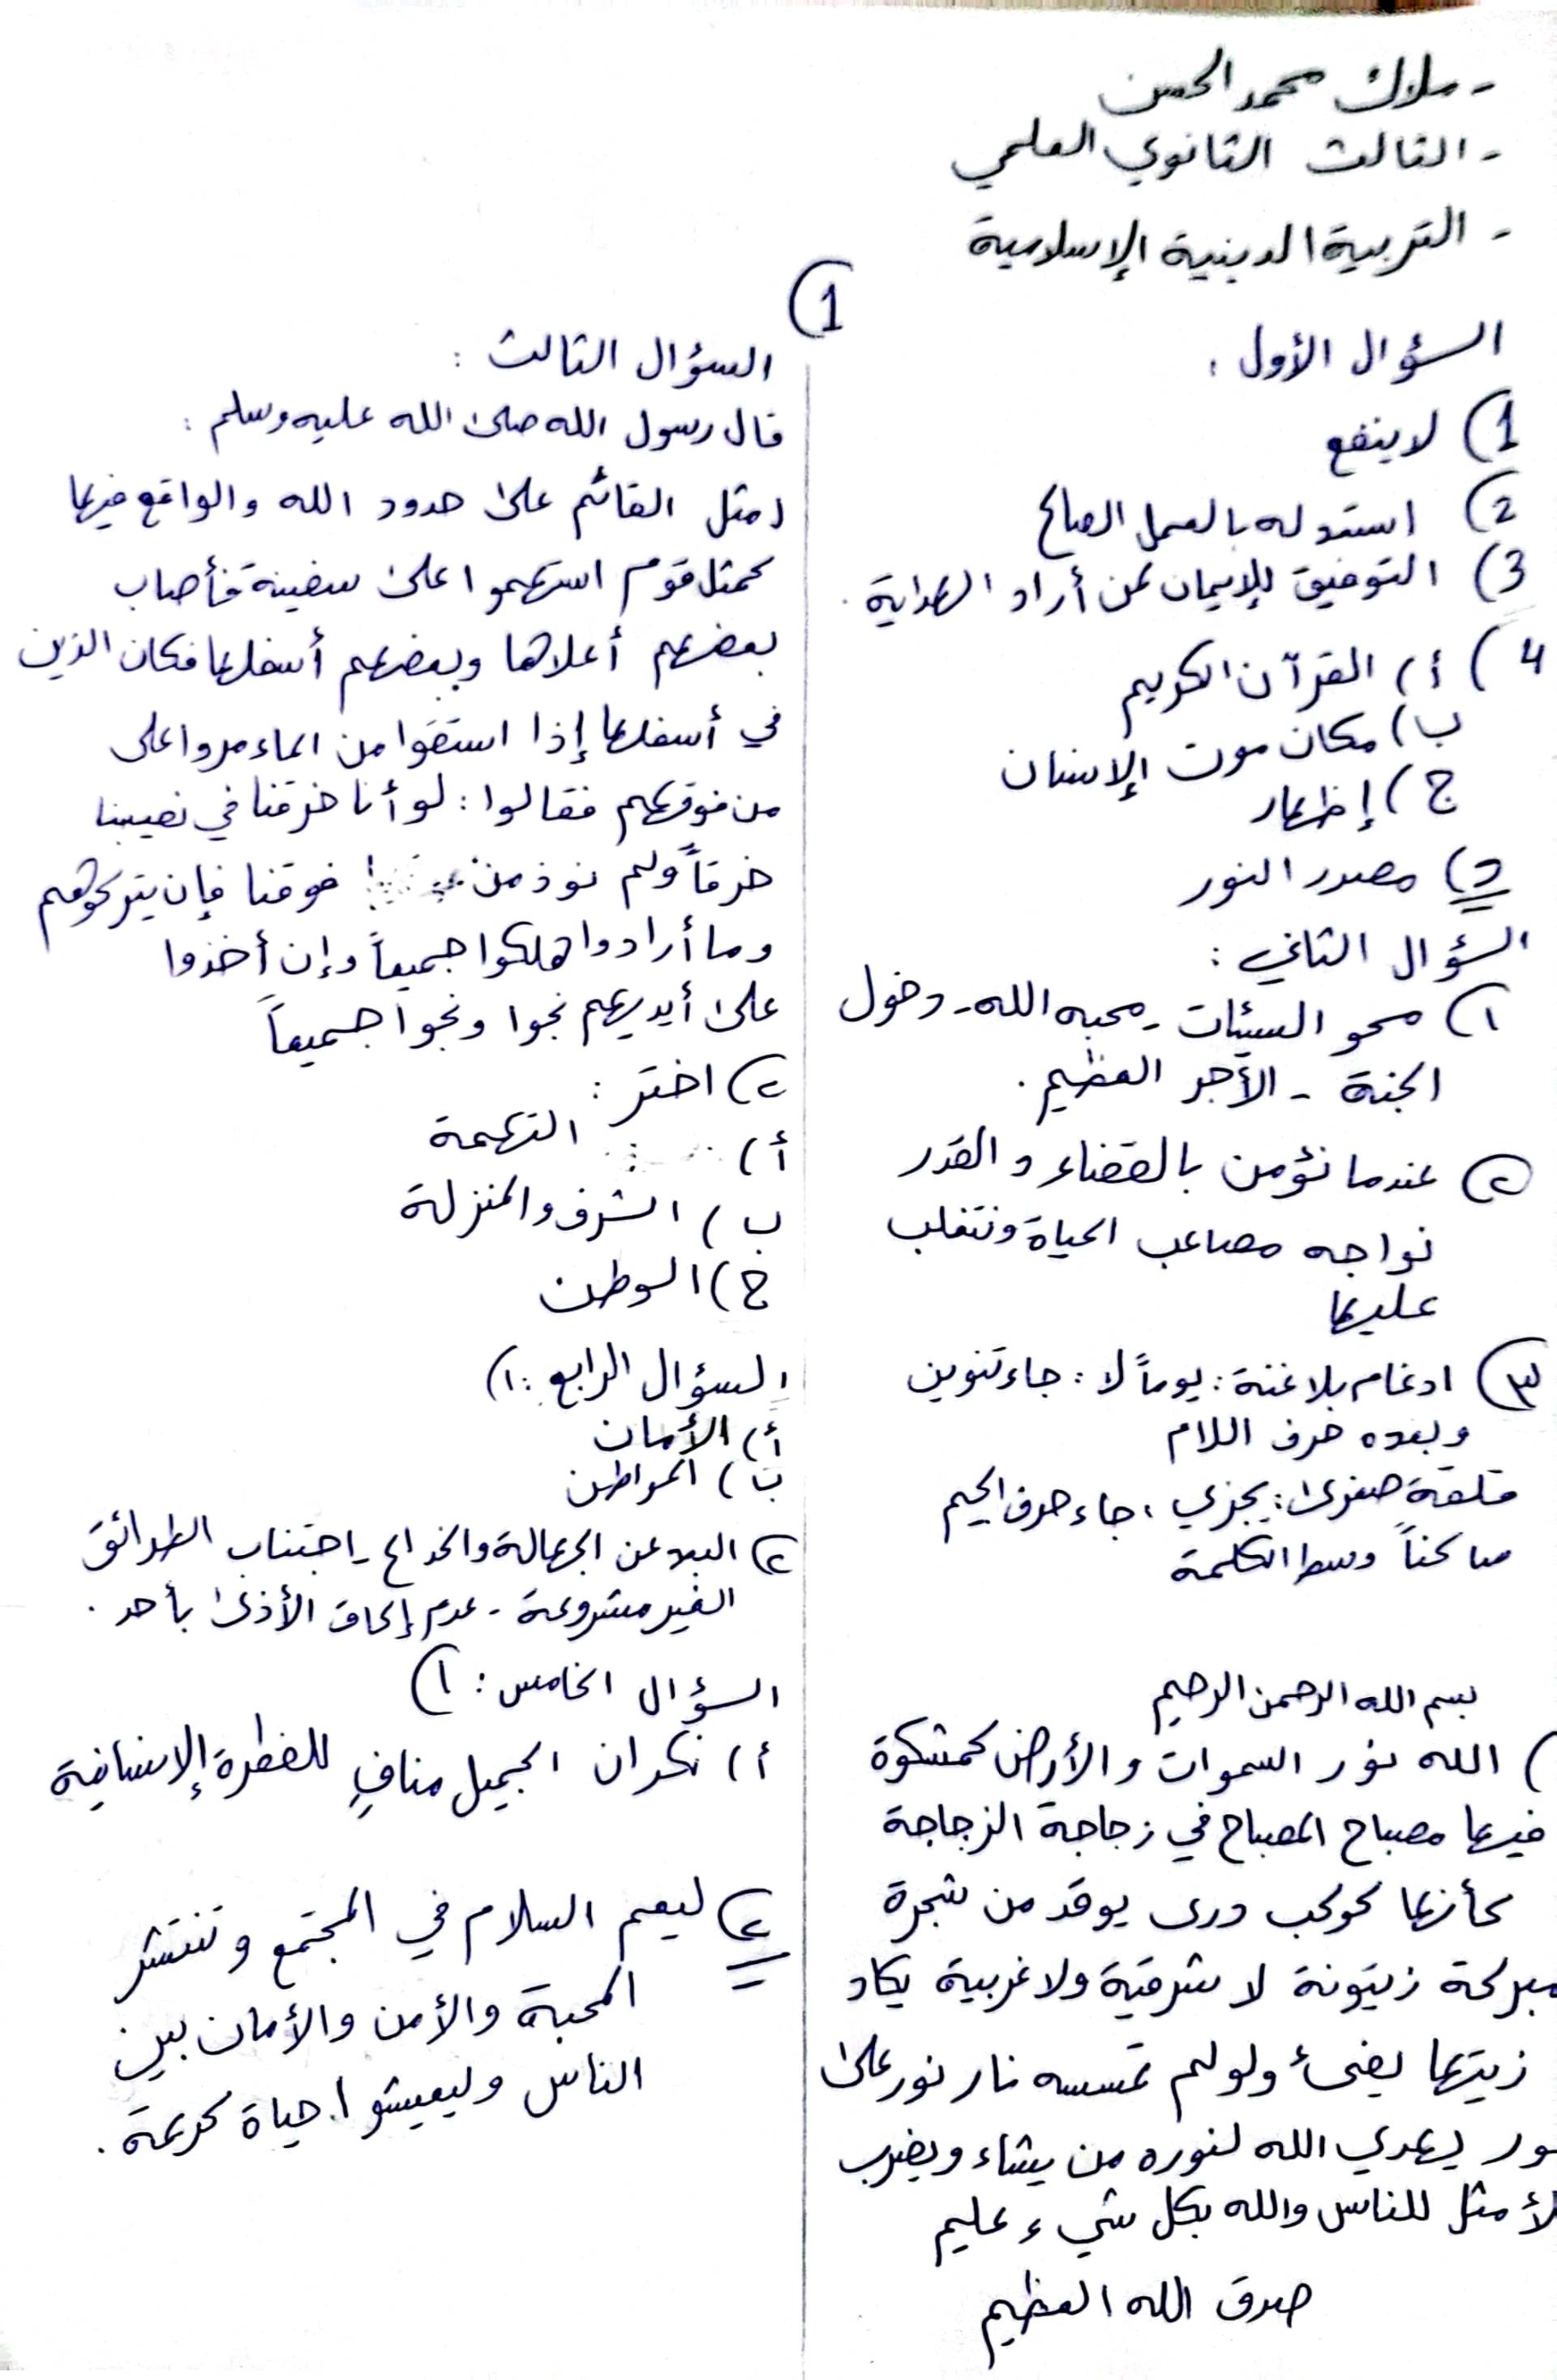 - ملاك محمد الحسن
- الثالث الثانوي العلمي
- التربية الدينية الإسلامية
1)
السؤال الأول :
1) لا ينفع
2) استبدله بالعمل الصالح
3) التوفيق للإيمان لمن أراد الهداية .
4) أ) القرآن الكريم
ب) مكان موت الإنسان
ج) إظهار
د) مصدر النور
السؤال الثاني :
١) محو السيئات - محبه الله - دخول
الجنة - الأجر العظيم .
٢) عندما نؤمن بالقضاء و القدر
نواجه مصاعب الحياة ونتغلب
عليها
٣) ادغام بلا غنة : يوماً لا : جاء تنوين
وبعده حرف اللام
قلقة صغرى : يجزي ، جاء حرف الجيم
ساكناً وسط الكلمة
بسم الله الرحمن الرحيم
) الله نور السموات والأرض كمشكوة
فيها مصباح المصباح في زجاجة الزجاجة
كأنها كوكب دري يوقد من شجرة
مبركة زيتونة لا شرقية ولا غربية يكاد
زيتها يضيئ ولو لم تمسسه نار نور على
نور يهدي الله لنوره من يشاء ويضرب
الأمثل للناس والله بكل شيء عليم
صدق الله العظيم
السؤال الثالث :
قال رسول الله صلى الله عليه وسلم :
(مثل القائم على حدود الله والواقع فيها
كمثل قوم استهموا على سفينة فأصاب
بعضهم أعلاها وبعضهم أسفلها فكان الذين
في أسفلها إذا استقوا من الماء مروا على
من فوقهم فقالوا : لو أنا خرقنا في نصيبنا
خرقاً ولم نوذ من فوقنا فإن يتركوهم
وما أرادوا هلكوا جميعاً وإن أخذوا
على أيديهم نجوا ونجوا جميعاً
٢) اختر :
أ) التهمة
ب) الشرف والمنزلة
ج) الوطن
السؤال الرابع : ١)
أ) الأمان
ب) المواطن
٢) البعد عن الجهالة والخداع - اجتناب الطرائق
الغير مشروعة - عدم إلحاق الأذى بأحد .
السؤال الخامس : ١)
أ) نكران الجميل منافٍ للفطرة الإنسانية
٢) ليعم السلام في المجتمع وتنتشر
المحبة والأمن والأمان بين
الناس وليعيشوا حياة كريمة .